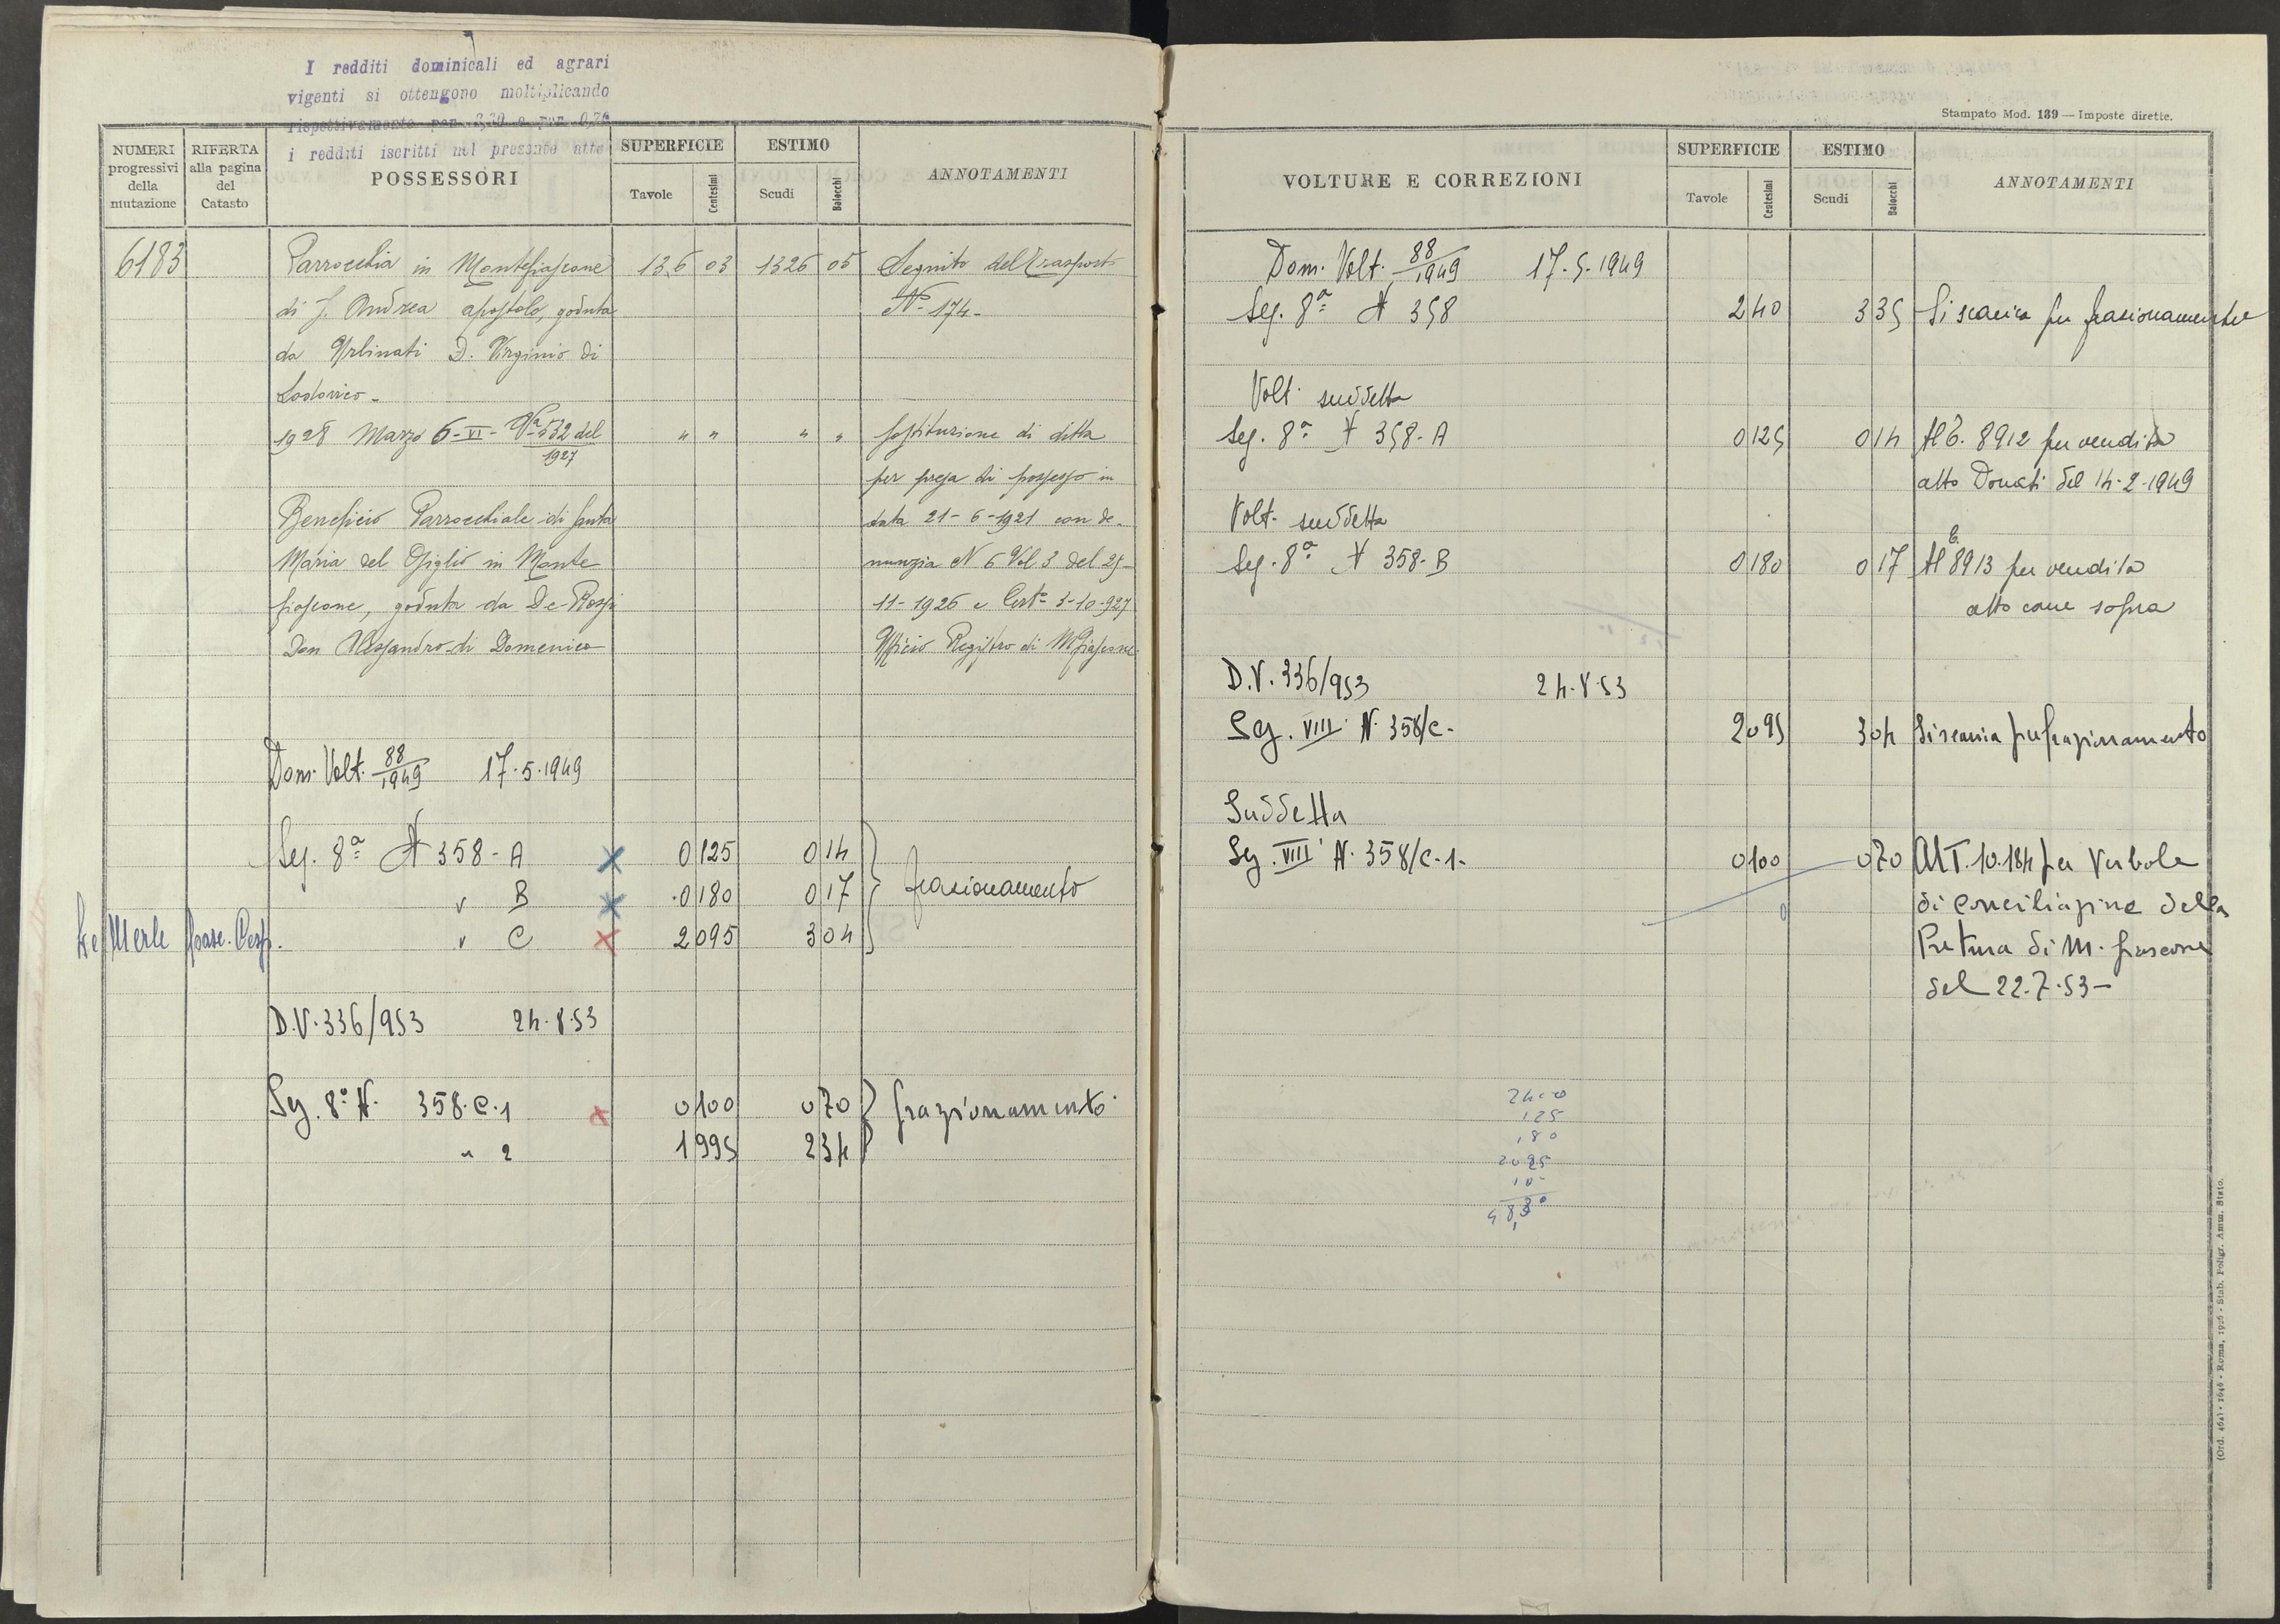 I redditi dominicali ed agrari
vigenti si ottengono moltiplicando
rispettivamente per 3,30 e per 0,76
i redditi iscritti nel presente atto
NUMERI progressivi della mutazione
RIFERTA alla pagina del Catasto
POSSESSORI
SUPERFICIE
Tavole
Centesimi
ESTIMO
Scudi
Baiocchi
ANNOTAMENTI
6183 Parrocchia in Montefiascone 136 03 1326 05 Seguito del Trasporto
di S. Andrea apostolo, goduta N° 174-
da Urbinati D. Virginio di
Lodovico-
1928 Marzo 6-VI- Va 532 del 1927 " " " " Sostituzione di ditta
per presa di possesso in
Beneficio Parrocchiale di Santa data 21-6-1921 con de-
Maria del Giglio in Monte nunzia N 6 Vol. 3 del 25-
fiascone, goduta da De-Rossi 11-1926 e Certo 3-10-927
Don Alessandro di Domenico Ufficio Registro di Mfiascone
Dom. Volt. 88/1949 17.5.1949
Seg. 8a N 358-A X 0 125 0 14
" B X 0 180 0 17 frazionamento
" C X 2 095 3 04
D.V. 336/953 24.8.53
Seg. 8a N. 358.C.1 X 0 100 0 70 frazionamento
" 2 1 995 2 34
Stampato Mod. 139 — Imposte dirette.
VOLTURE E CORREZIONI
SUPERFICIE
Tavole
Centesimi
ESTIMO
Scudi
Baiocchi
ANNOTAMENTI
Dom. Volt. 88/1949 17.5.1949
Seg. 8a N 358 2 40 3 35 Si scarica per frazionamento
Volt. suddetta
Seg. 8a N 358-A 0 125 0 14 Al C. 8912 per vendita
atto Donati del 14-2-1949
Volt. suddetta
Seg. 8a N 358-B 0 180 0 17 Al C. 8913 per vendita
atto come sopra
D.V. 336/953 24.8.53
Seg. VIII N. 358/C- 2 095 3 04 Si scarica per frazionamento
Suddetta
Seg. VIII N. 358/C-1- 0 100 0 70 Al T. 10.184 per Verbale
di Conciliazione della
Pretura di M. fiascone
del 22.7.53-
125
180
2095
(Ord. 464) - 1646 - Roma, 1926 - Stab. Poligr. Amm. Stato.